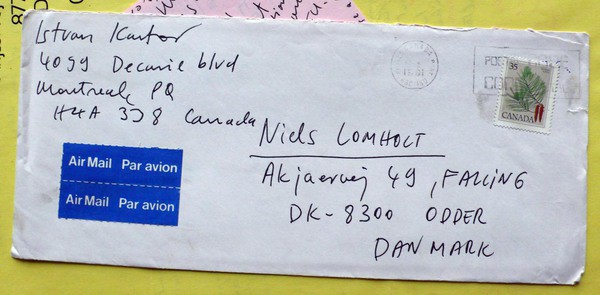 Istvan Kantor
4099 Decarie blvd
Montreal, PQ
H4A 3J8 Canada
Niels LOMHOLT
Akjaervej 49, FALLING
DK-8300 ODDER
DANMARK
Air Mail Par avion
Air Mail Par avion
35
CANADA